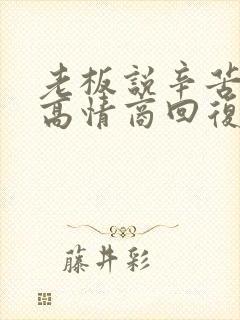 老板說辛苦
高情商回復
藤井彩